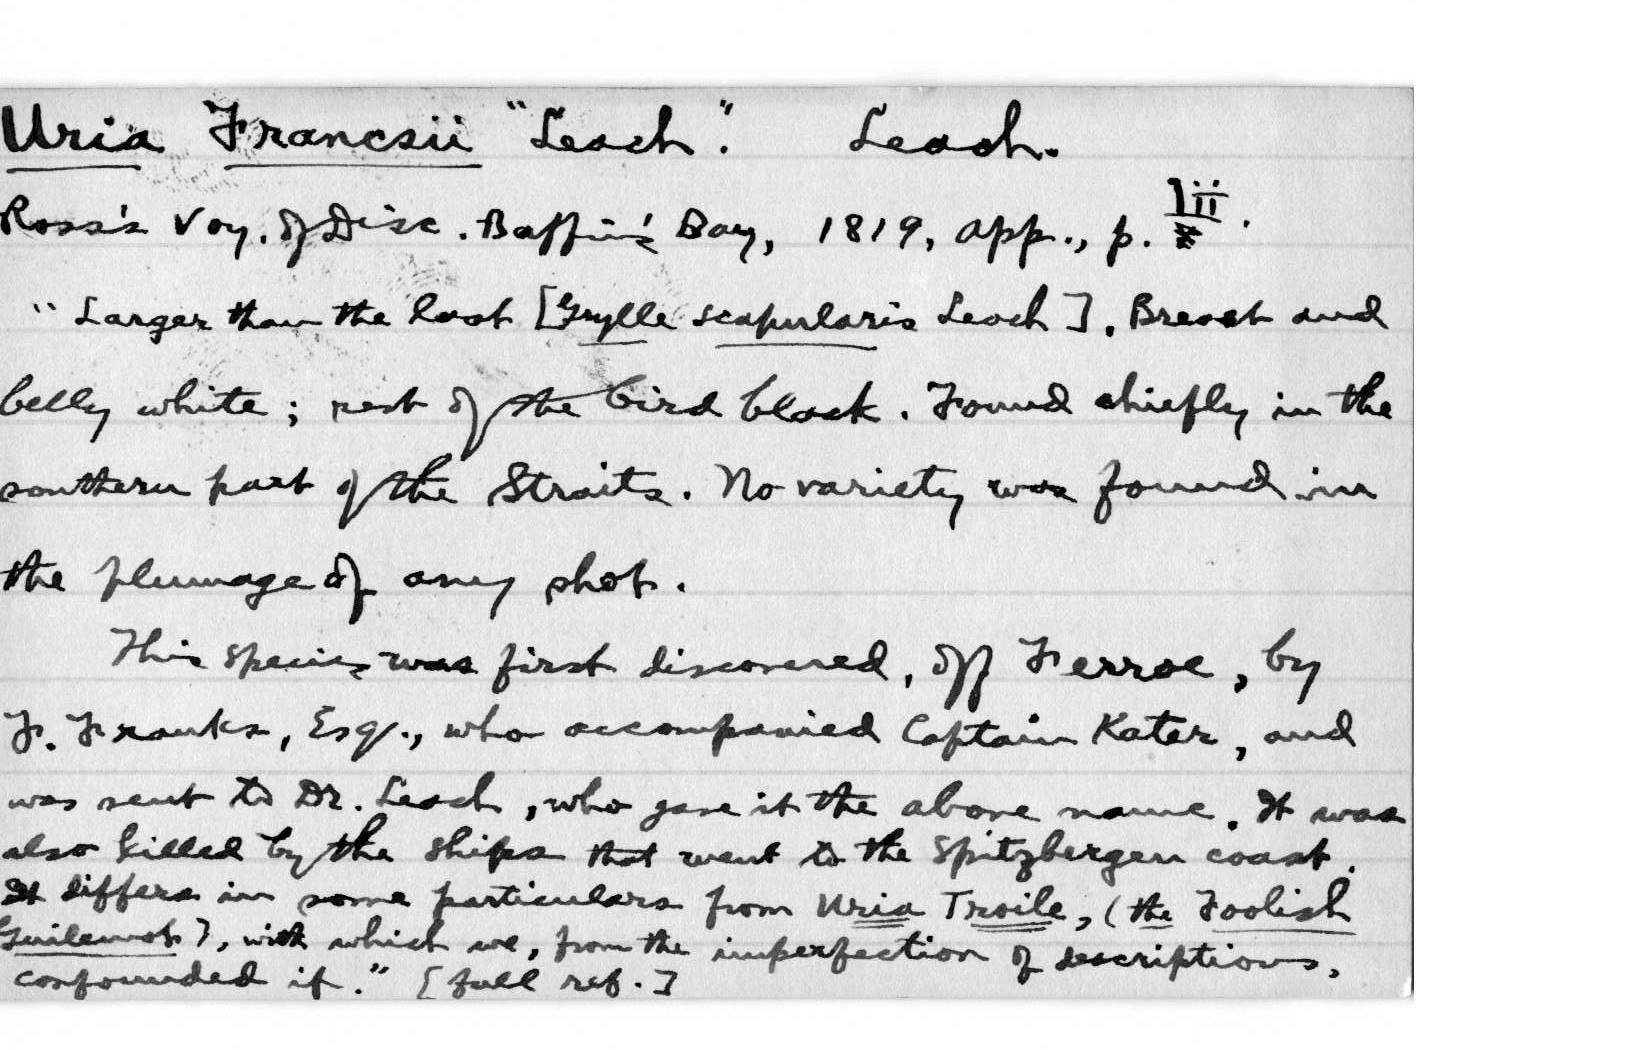 Uria Francsii "Leach". Leach.
Ross's Voy. of Disc. Baffin's Bay, 1819, app., p. lii.
"Larger than the last [Grylle scapularis Leach]. Breast and
belly white; rest of the bird black. Found chiefly in the
southern part of the Straits. No variety was found in
the plumage of any shot.
This species was first discovered, off Ferroe, by
F. Franks, Esq., who accompanied Captain Kater, and
was sent to Dr. Leach, who gave it the above name. It was
also killed by the ships that went to the Spitzbergen coast.
It differs in some particulars from Uria Troile, (the Foolish
Guilemot), with which we, from the imperfection of descriptions,
confounded it." [full ref.]